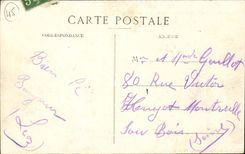 45
CARTE POSTALE
CORRESPONDANCE
ADRESSE
Bien
Bonjour
Mr et Mme Guillot
80 Rue Victor
Hugo Montreuil
Sous Bois (Seine)